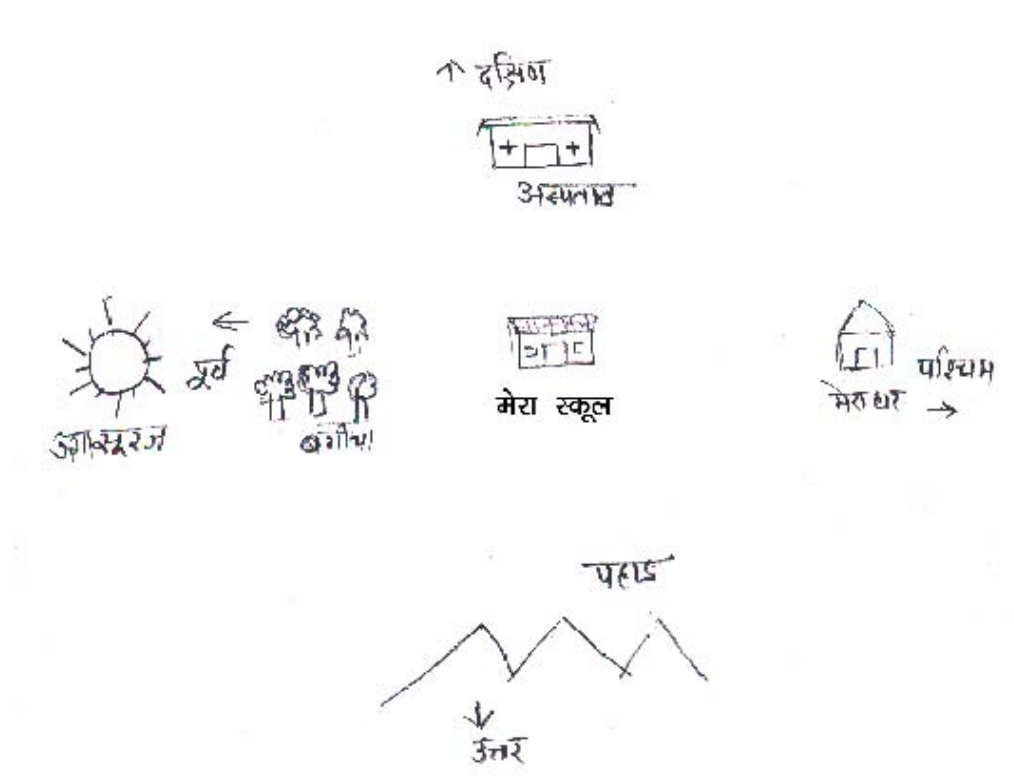 दक्षिण
अस्पताल
पूर्व
उगता सूरज
बगीचा
मेरा स्कूल
मेरा घर
पश्चिम
पहाड
उत्तर